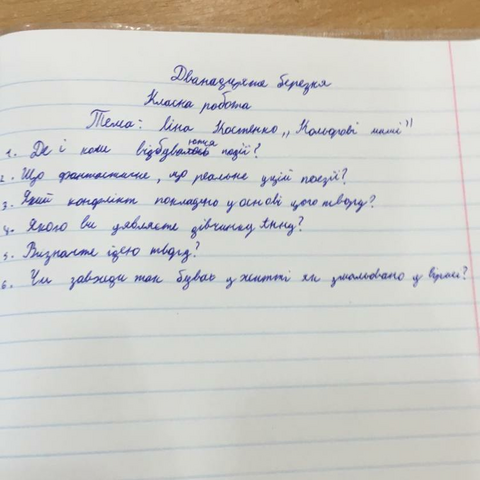 Дванадцяте березня
Класна робота
Тема: Ліна Костенко „Кольорові миші"
1. Де і коли відбуваються події?
2. Що фантастичне, що реальне у цій поезії?
3. Який конфлікт покладено у основі цього твору?
4. Якого ви уявляєте дівчинку Анну?
5. Визначте ідею твору?
6. Чи завжди так буває у житті як змальовано у вірші?